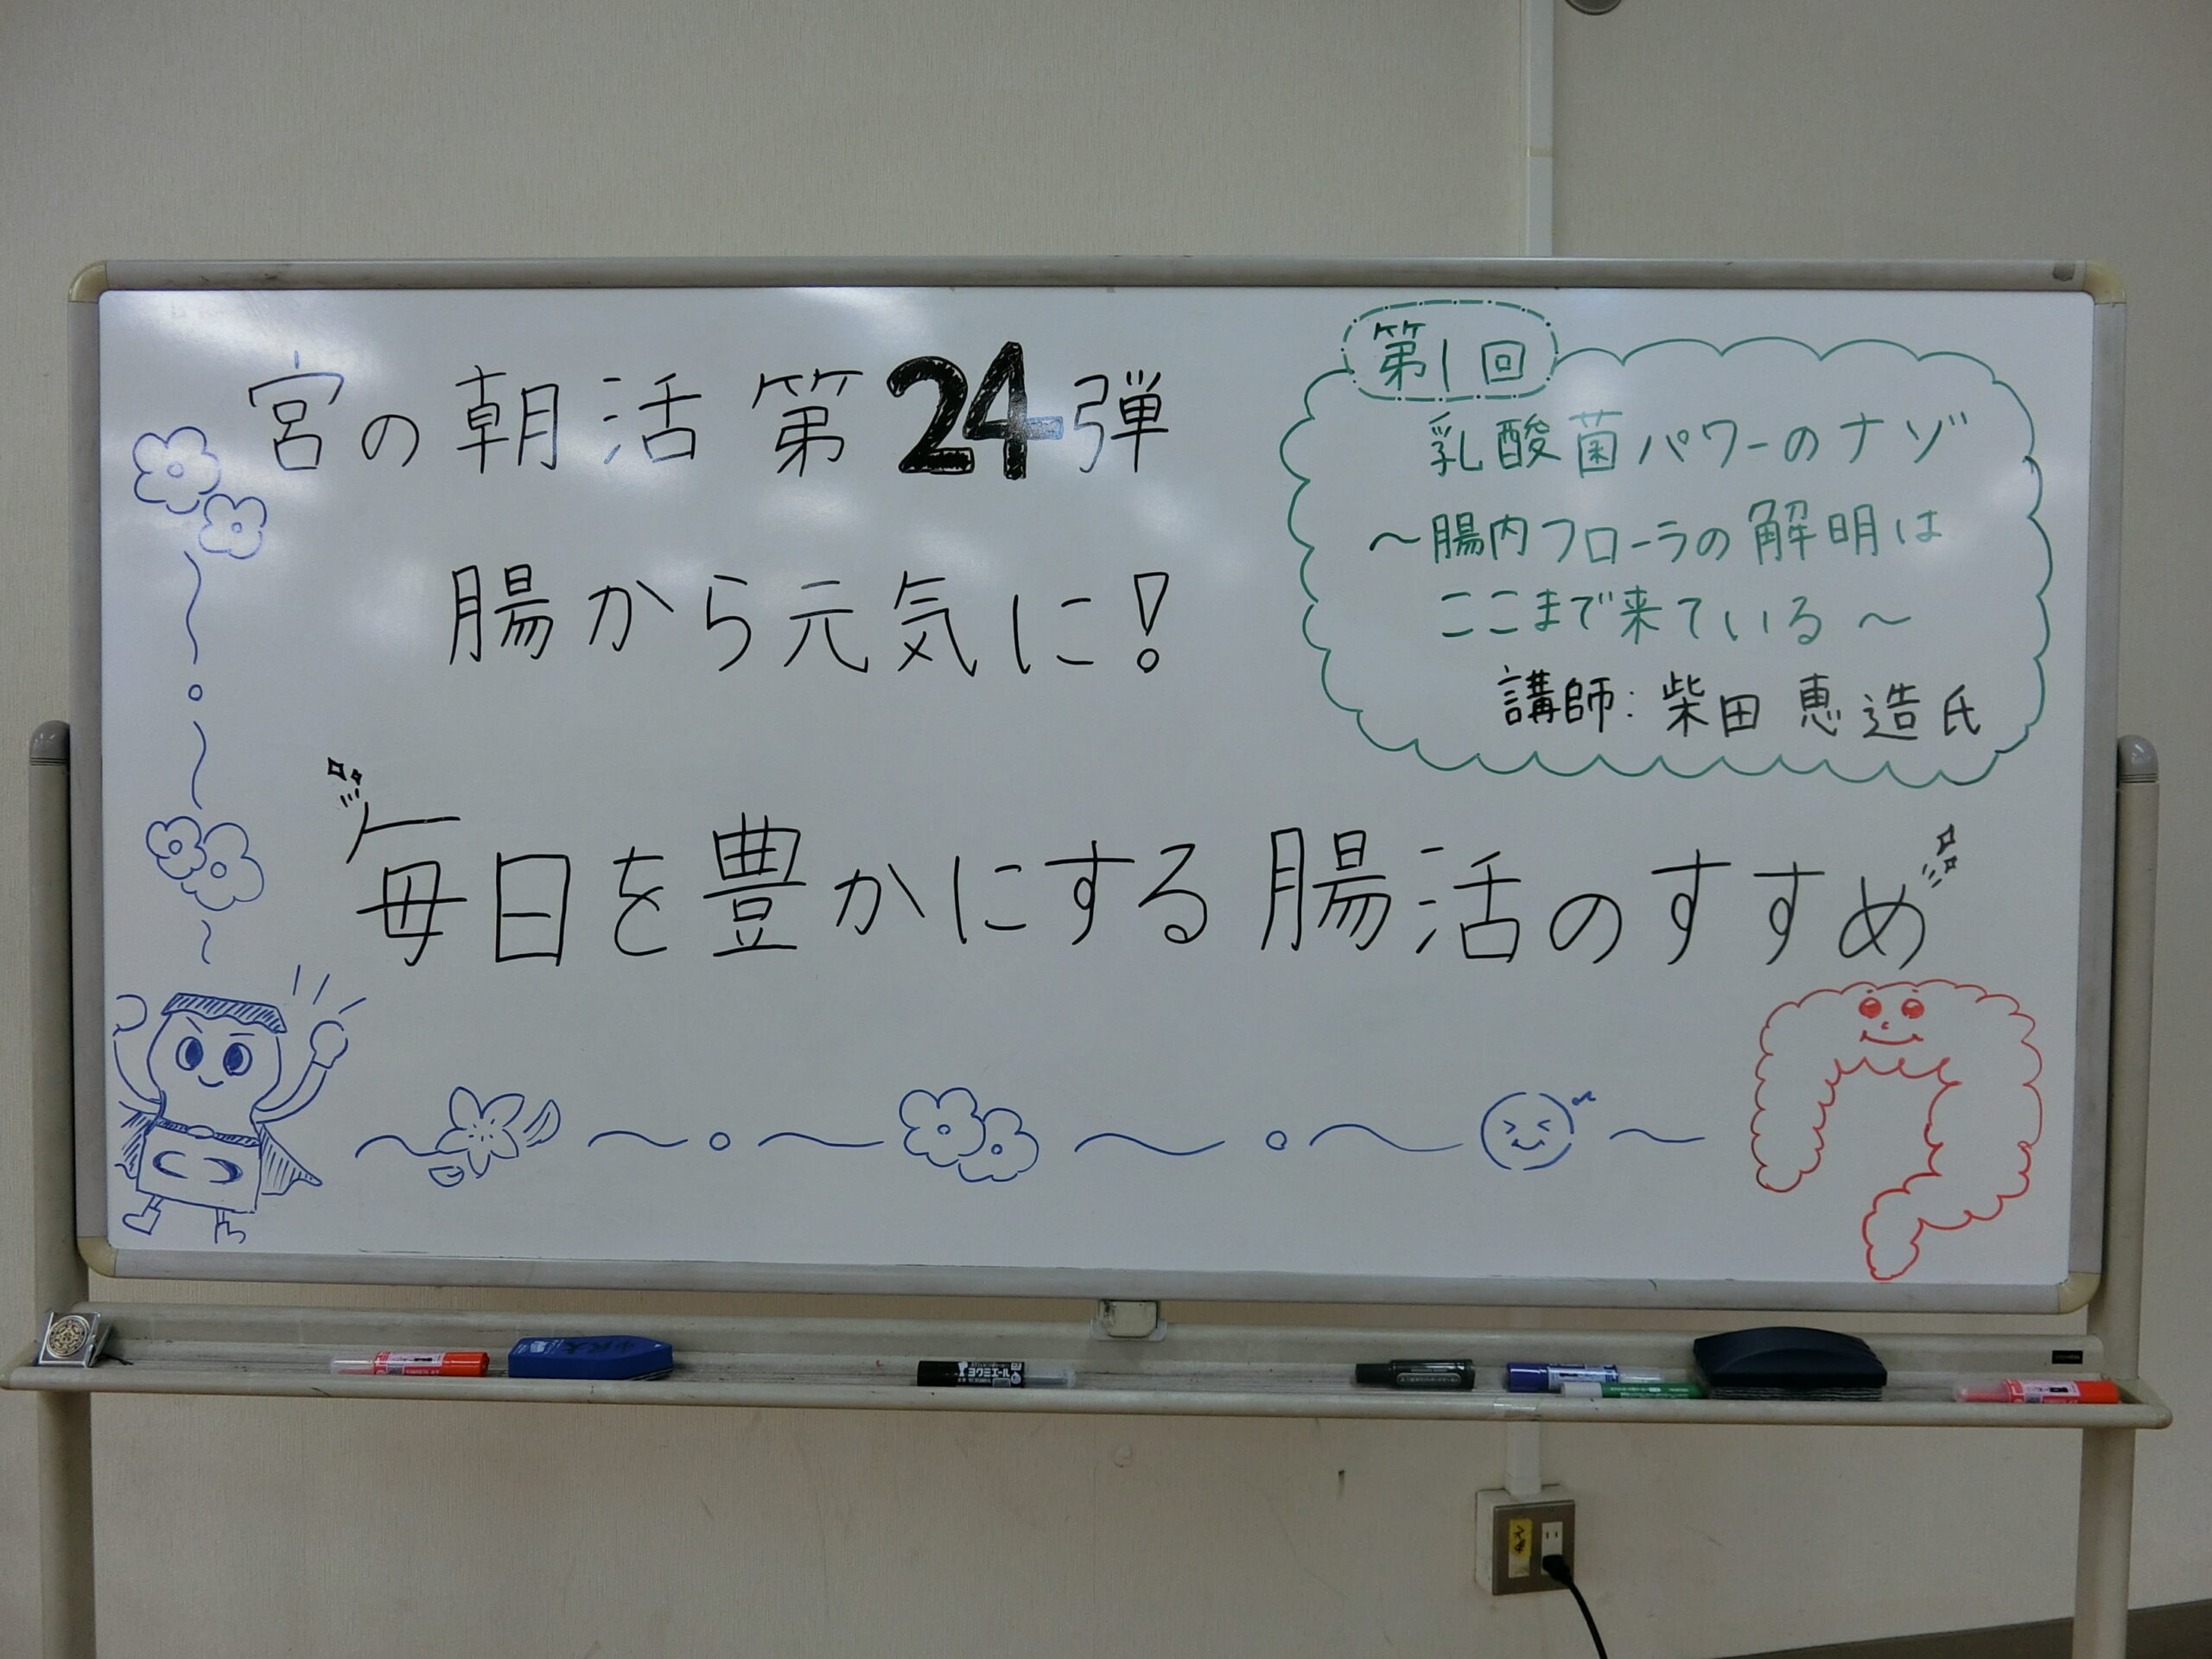 宮の朝活 第24弾
腸から元気に!
毎日を豊かにする 腸活のすすめ
第1回
乳酸菌パワーのナゾ
〜腸内フローラの解明は
ここまで来ている〜
講師:柴田 恵造氏
ヨクミエール